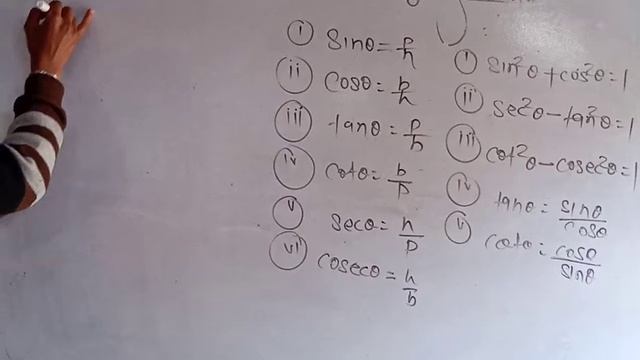 i sinθ = p/h
ii cosθ = b/h
iii tanθ = p/b
iv cotθ = b/p
v secθ = h/p
vi cosecθ = h/b
i sin²θ + cos²θ = 1
ii sec²θ - tan²θ = 1
iii cot²θ - cosec²θ = 1
iv tanθ = sinθ/cosθ
v cotθ = cosθ/sinθ